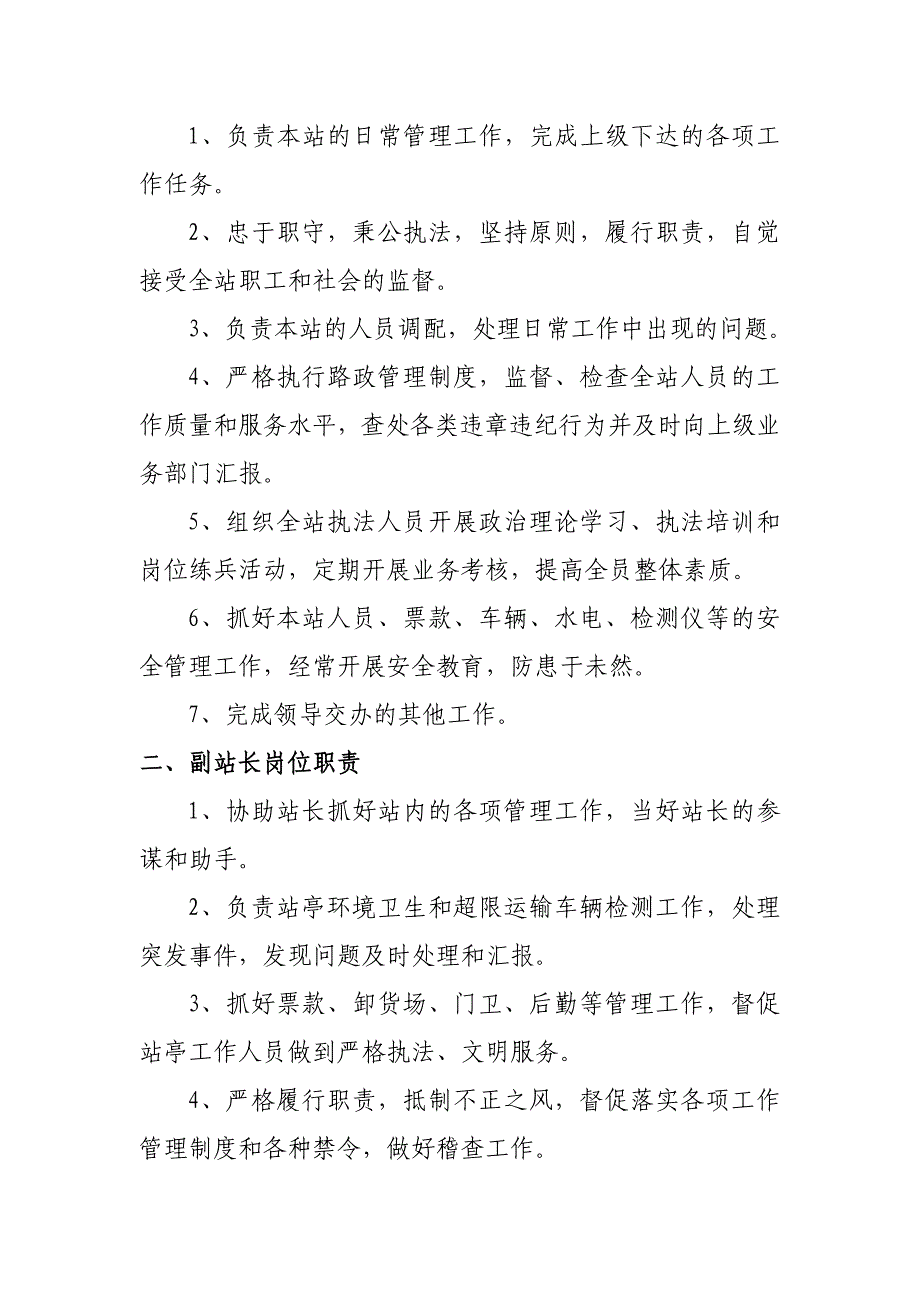 1、负责本站的日常管理工作，完成上级下达的各项工
作任务。
2、忠于职守，秉公执法，坚持原则，履行职责，自觉
接受全站职工和社会的监督。
3、负责本站的人员调配，处理日常工作中出现的问题。
4、严格执行路政管理制度，监督、检查全站人员的工
作质量和服务水平，查处各类违章违纪行为并及时向上级业
务部门汇报。
5、组织全站执法人员开展政治理论学习、执法培训和
岗位练兵活动，定期开展业务考核，提高全员整体素质。
6、抓好本站人员、票款、车辆、水电、检测仪等的安
全管理工作，经常开展安全教育，防患于未然。
7、完成领导交办的其他工作。
二、副站长岗位职责
1、协助站长抓好站内的各项管理工作，当好站长的参
谋和助手。
2、负责站亭环境卫生和超限运输车辆检测工作，处理
突发事件，发现问题及时处理和汇报。
3、抓好票款、卸货场、门卫、后勤等管理工作，督促
站亭工作人员做到严格执法、文明服务。
4、严格履行职责，抵制不正之风，督促落实各项工作
管理制度和各种禁令，做好稽查工作。